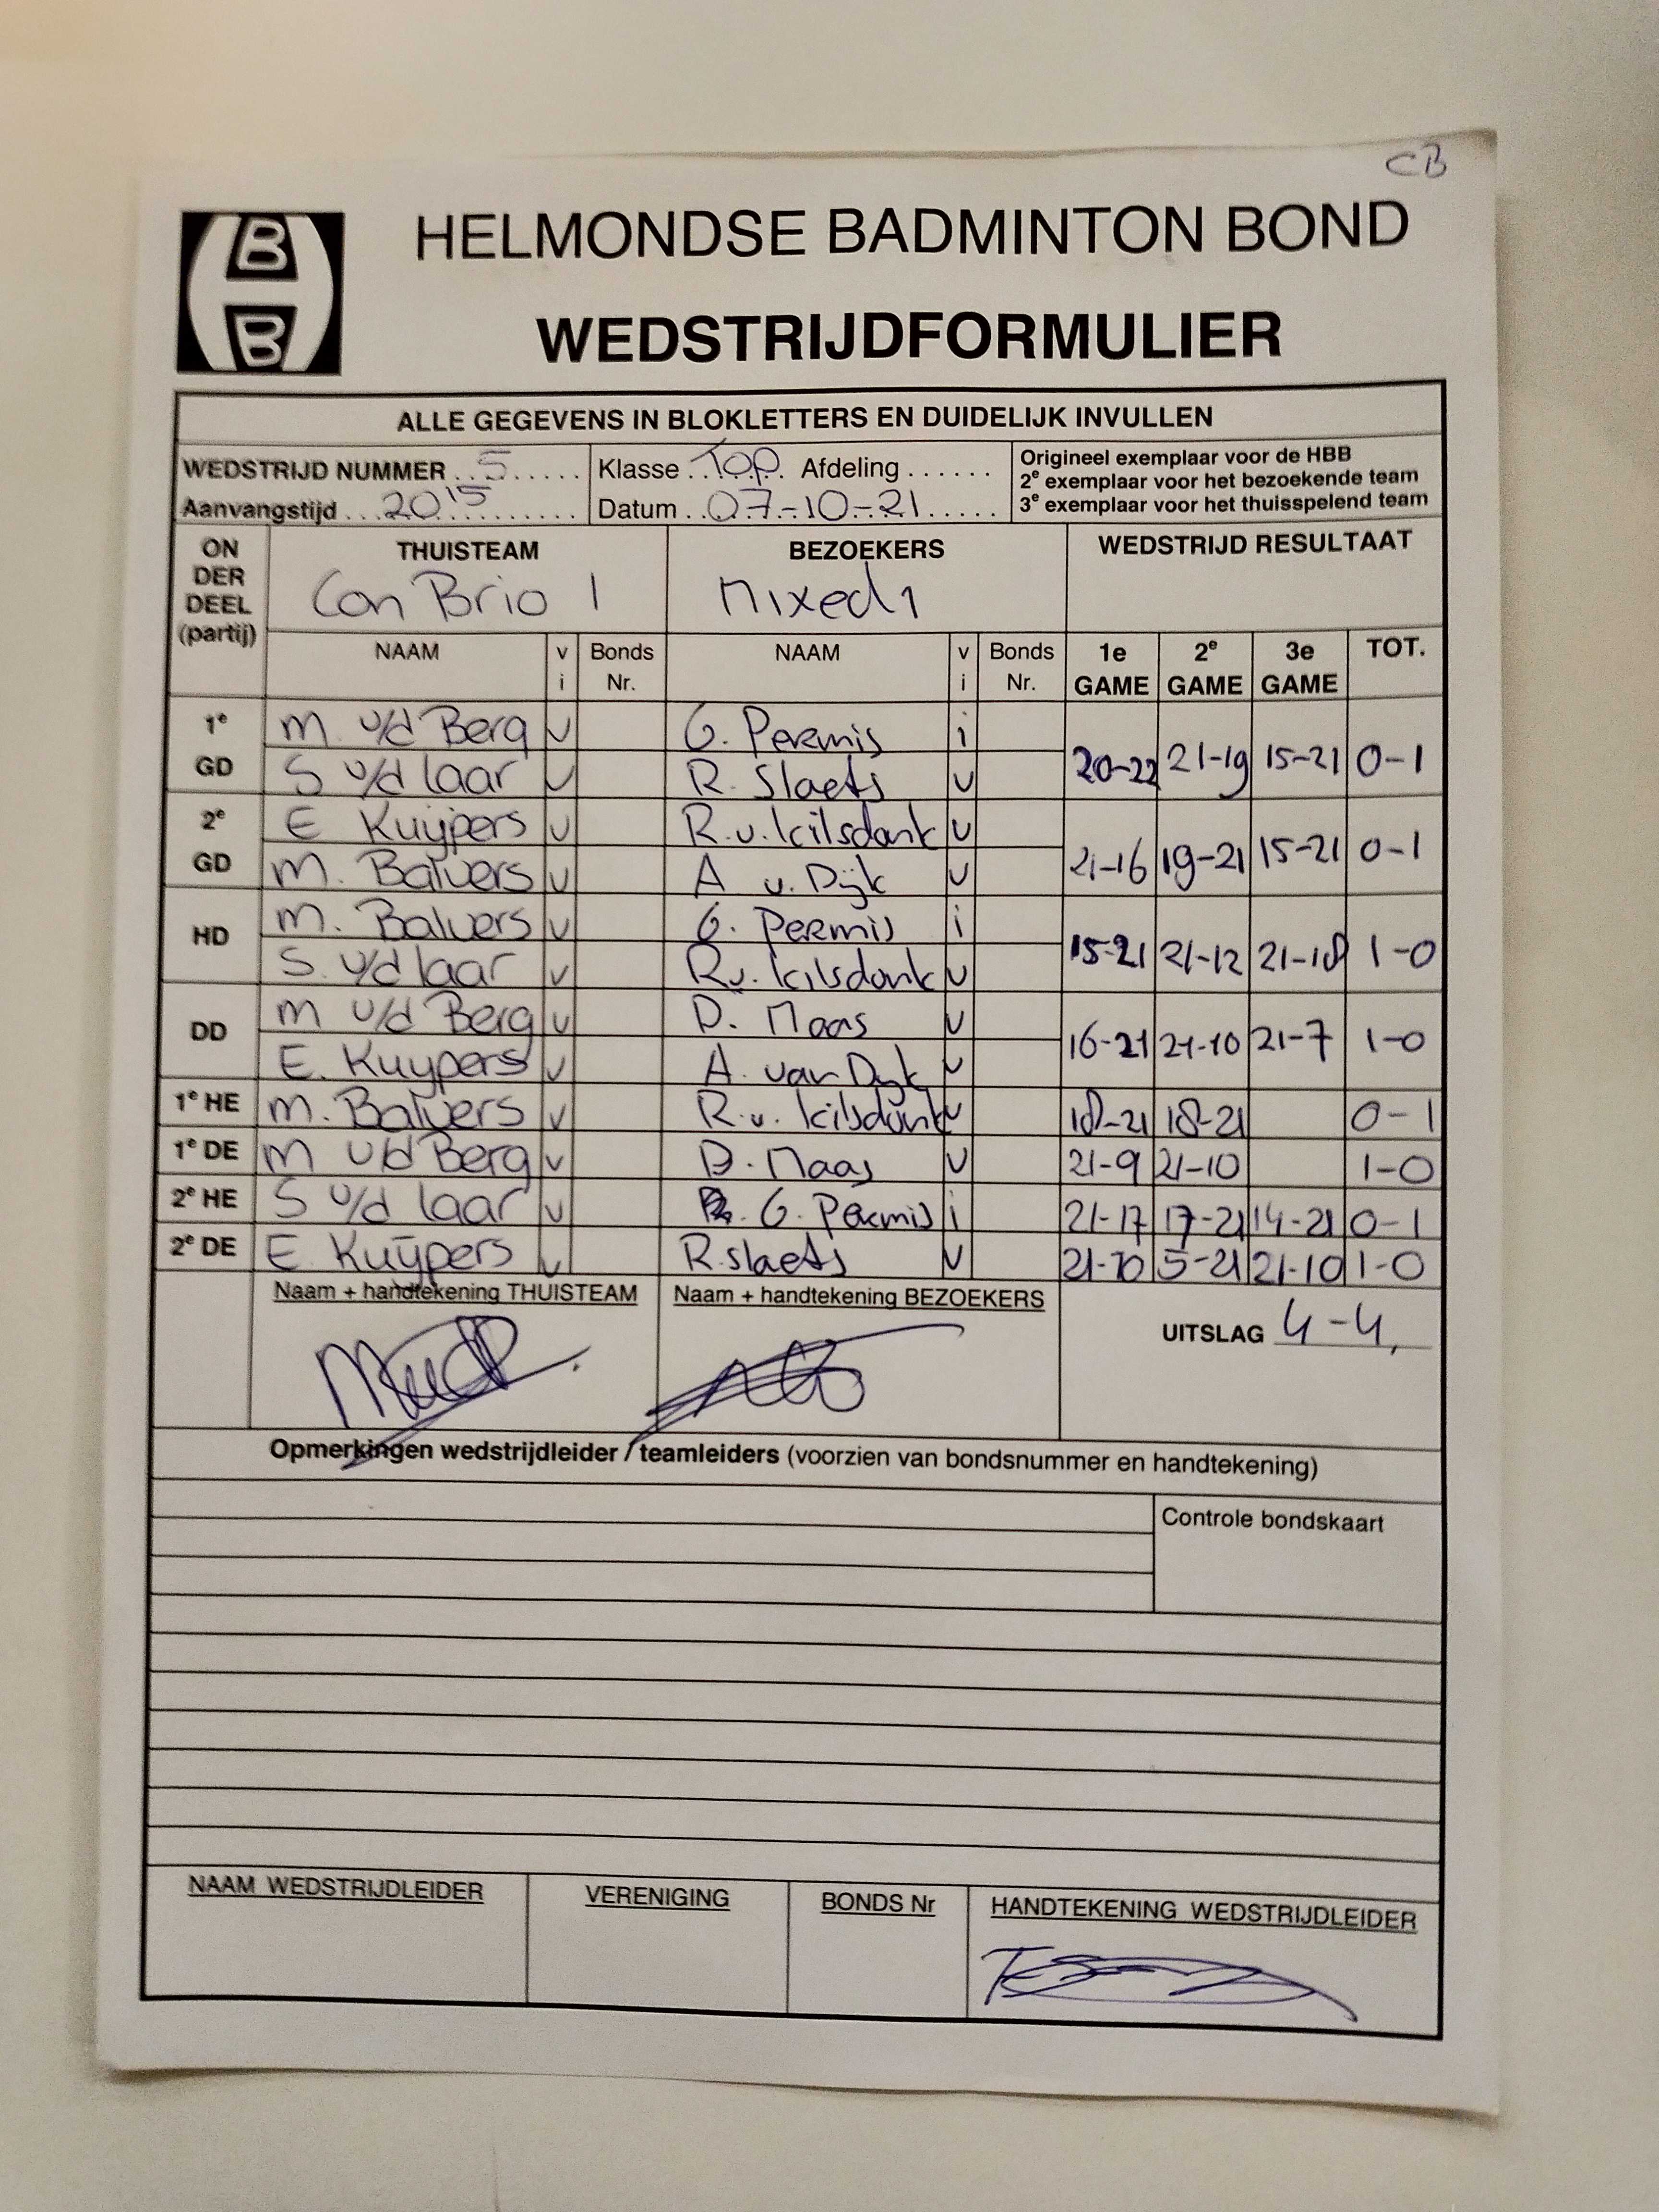 CB
HBB
HELMONDSE BADMINTON BOND
WEDSTRIJDFORMULIER
ALLE GEGEVENS IN BLOKLETTERS EN DUIDELIJK INVULLEN
WEDSTRIJD NUMMER ..5..... Klasse .Top. Afdeling ...... Origineel exemplaar voor de HBB
2e exemplaar voor het bezoekende team
Aanvangstijd ...20 15.......... Datum ..07-10-21..... 3e exemplaar voor het thuisspelend team
ON DER DEEL (partij) THUISTEAM BEZOEKERS WEDSTRIJD RESULTAAT
Con Brio 1 Mixed 1
NAAM v i Bonds Nr. NAAM v i Bonds Nr. 1e GAME 2e GAME 3e GAME TOT.
1e GD M. v/d Berg v G. Permis i 20-22 21-19 15-21 0-1
S v/d laar v R. Slaets v
2e GD E Kuypers v R.v.Kilsdonk v 21-16 19-21 15-21 0-1
M. Balvers v A v. Dijk v
HD M. Balvers v G. Permis i 15-21 21-12 21-18 1-0
S. v/d laar v R.v. Kilsdonk v
DD M v/d Berg v D. Maas v 16-21 21-10 21-7 1-0
E. Kuypers v A. van Dyk v
1e HE M. Balvers v R.v. Kilsdonk v 18-21 18-21 0-1
1e DE M v/d Berg v D. Maas v 21-9 21-10 1-0
2e HE S v/d laar v G. Permis i 21-17 17-21 14-21 0-1
2e DE E. Kuypers v R.slaets v 21-10 5-21 21-10 1-0
Naam + handtekening THUISTEAM Naam + handtekening BEZOEKERS UITSLAG 4-4
Opmerkingen wedstrijdleider / teamleiders (voorzien van bondsnummer en handtekening)
Controle bondskaart
NAAM WEDSTRIJDLEIDER VERENIGING BONDS Nr HANDTEKENING WEDSTRIJDLEIDER